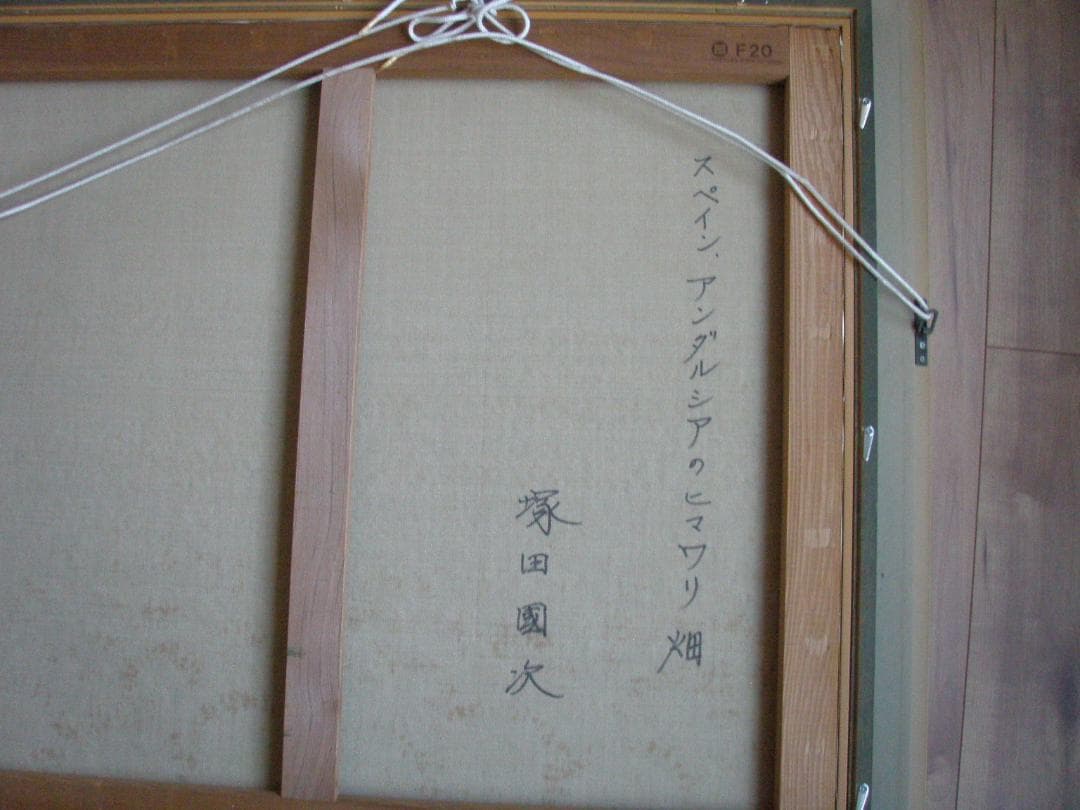 F20
スペイン、アンダルシアのヒマワリ畑
塚田國次